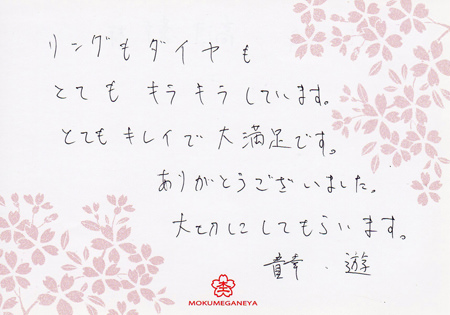 リングもダイヤも
とても キラキラしています。
とてもキレイで大満足です。
ありがとうございました。
大切にしてもらいます。
貴幸 . 遊
MOKUMEGANEYA